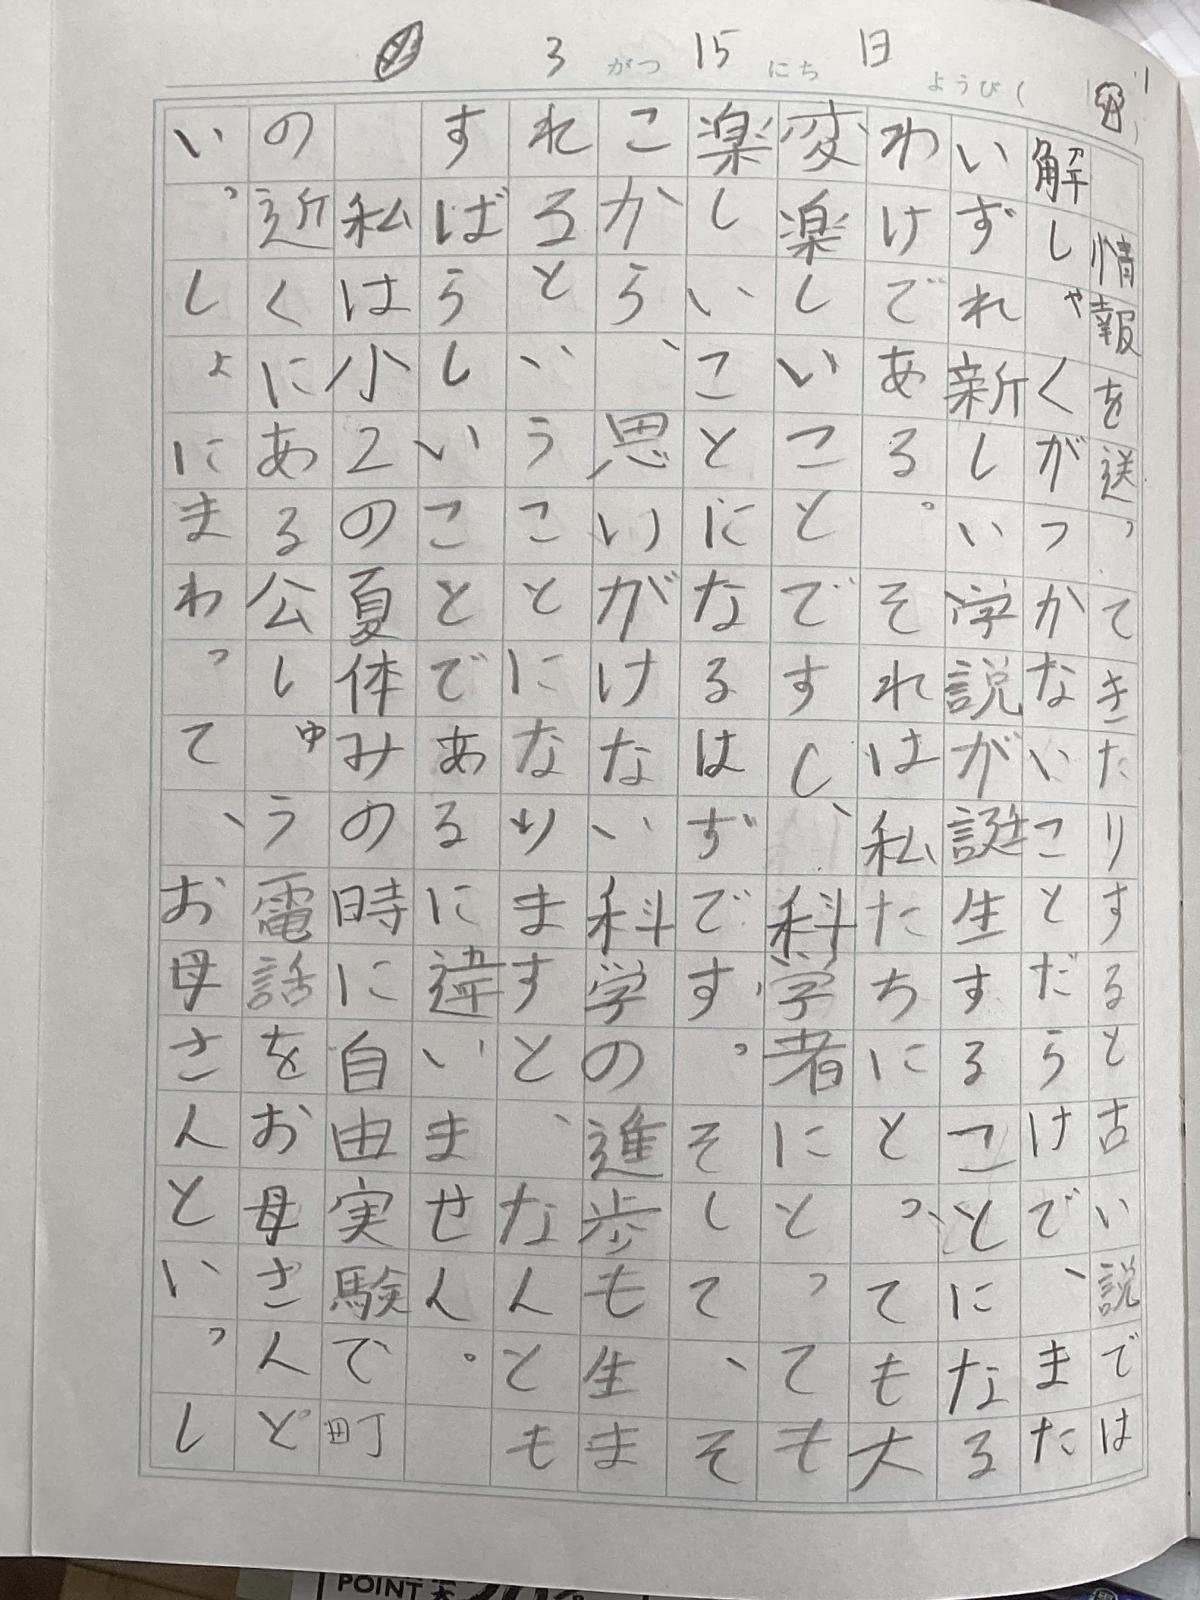 3がつ15にち日ようび(
情報を送ってきたりすると古い説では
解しゃくがつかないことだろうけで、また
いずれ新しい学説が誕生することになる
わけである。それは私たちにとっても大
変楽しいことですし、科学者にとっても
楽しいことになるはずです。そして、そ
こから、思いがけない科学の進歩も生ま
れるということになりますと、なんとも
すばらしいことであるに違いません。
私は小2の夏体みの時に自由実験で町
の近くにある公しゅう電話をお母さんと
いっしょにまわって、お母さんといっし
POINT